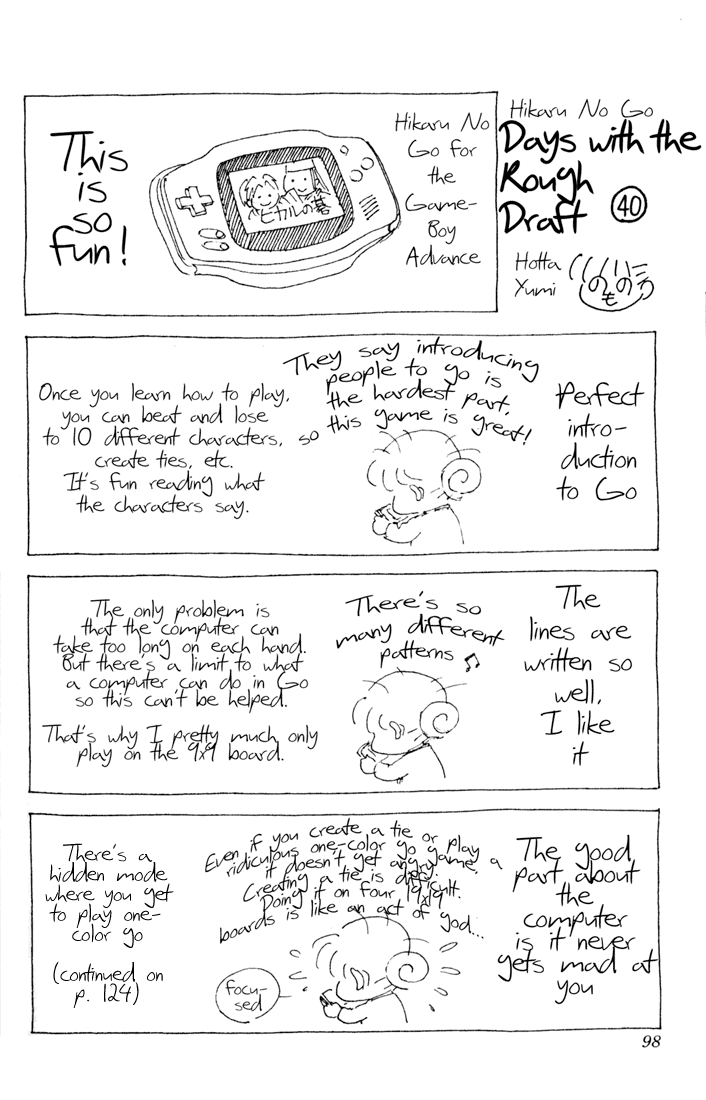 Hikaru No Go
Days with the
Rough
Draft 40
Hotta
Yumi
Hikaru No
Go for
the
Game-
Boy
Advance
This
is
so
fun!
ヒカルの碁
Perfect
intro-
duction
to Go
They say introducing
people to go is
the hardest part,
so this game is great!
Once you learn how to play,
you can beat and lose
to 10 different characters,
create ties, etc.
It's fun reading what
the characters say.
The
lines are
written so
well,
I like
it
There's so
many different
patterns ♫
The only problem is
that the computer can
take too long on each hand.
But there's a limit to what
a computer can do in Go
so this can't be helped.
That's why I pretty much only
play on the 9x9 board.
The good
part about
the
computer
is it never
gets mad at
you
Even if you create a tie or play a
ridiculous one-color go game,
it doesn't get angry.
Creating a tie is difficult.
Doing it on four 19x19
boards is like an act of god...
focu-
sed
There's a
hidden mode
where you get
to play one-
color go
(continued on
p. 124)
98